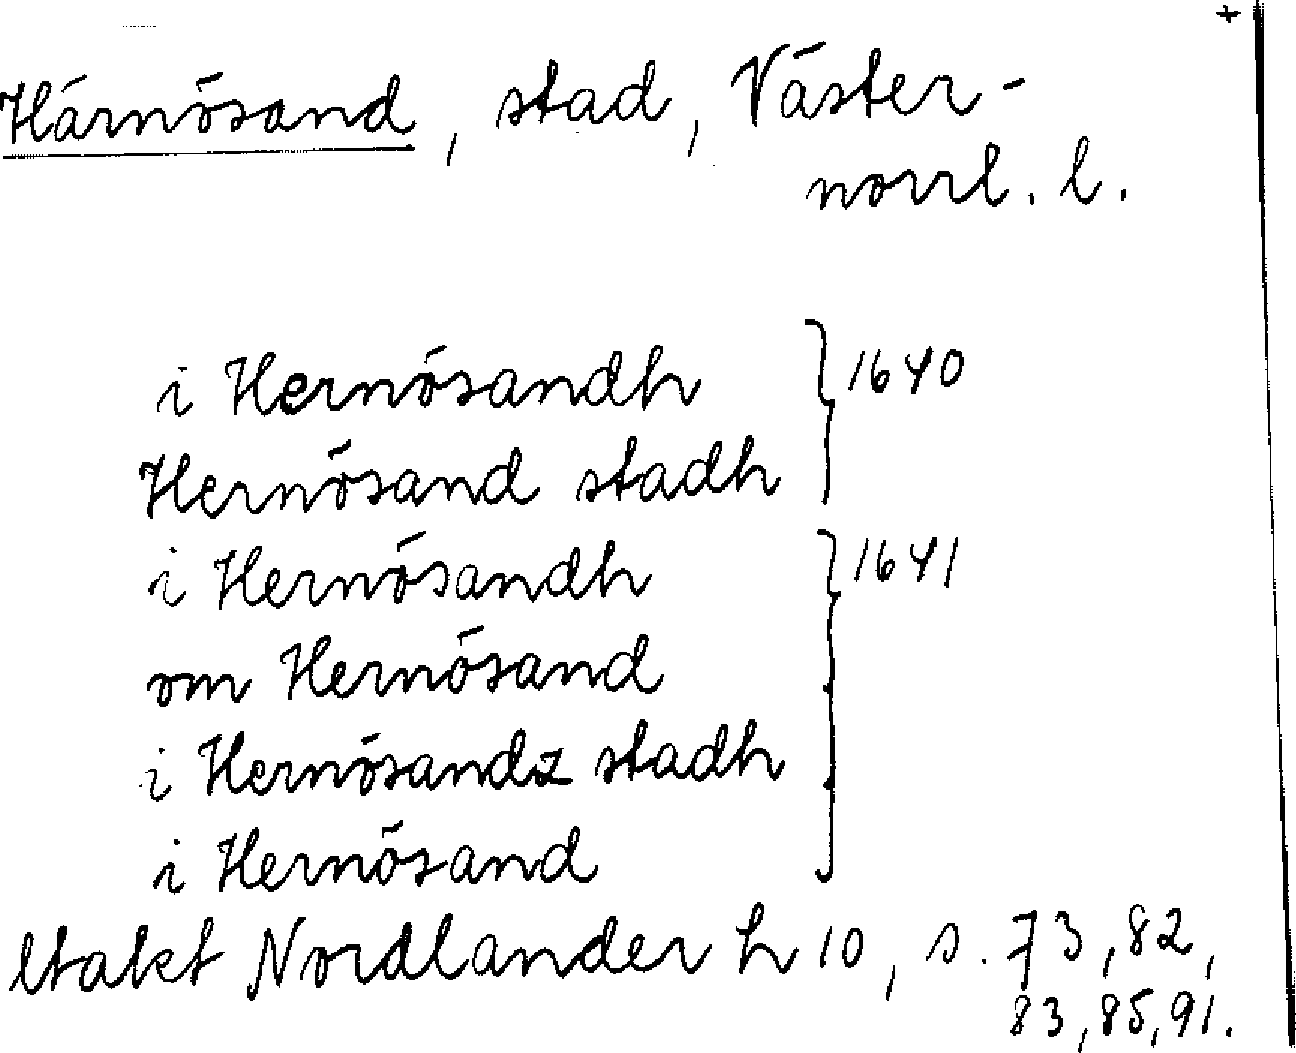 +
Härnösand, stad, Väster-
norrl. l.
i Hernösandh } 1640
Hernösand stadh
i Hernösandh } 1641
om Hernösand
i Hernösandz stadh
i Hernösand
ltakt Nordlander h 10, s. 73, 82,
83, 85, 91.